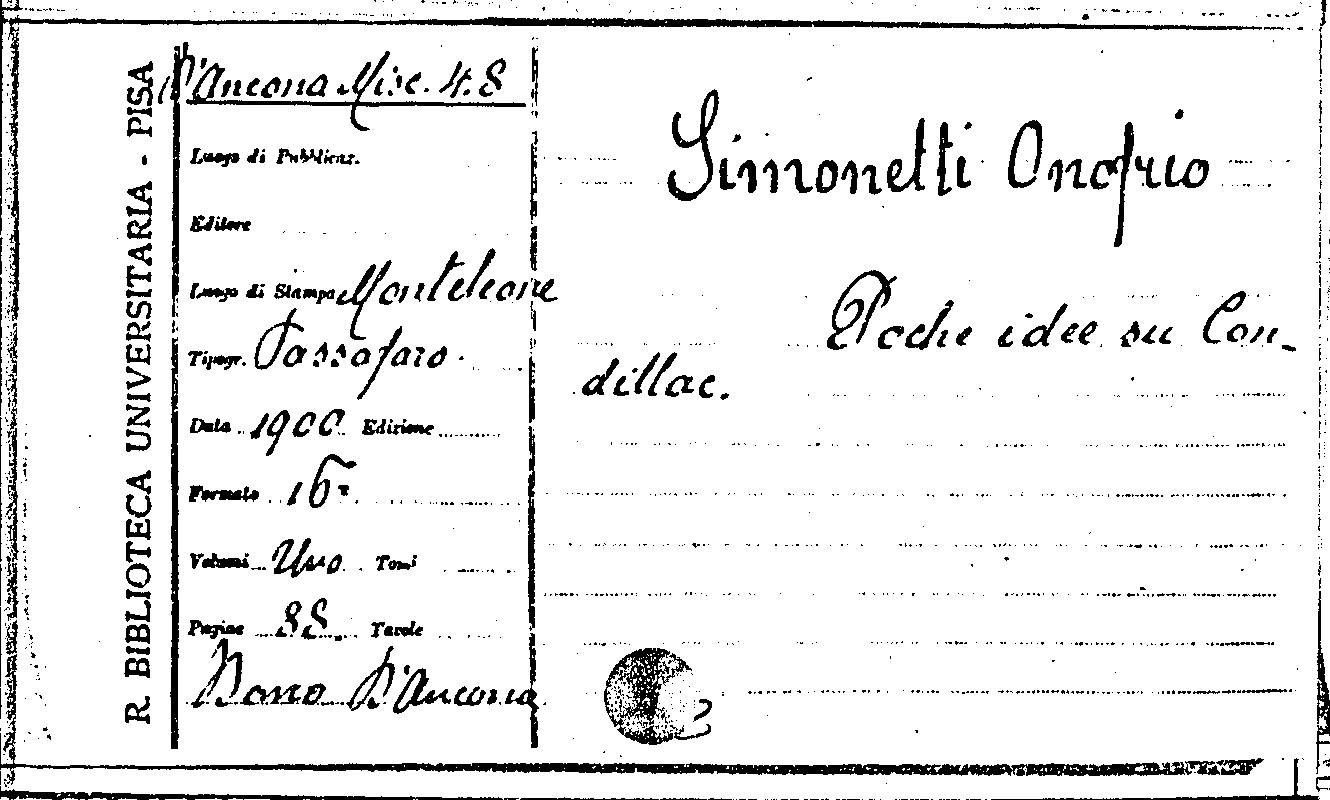 R. BIBLIOTECA UNIVERSITARIA - PISA
D'Ancona Misc. 4. 8
Luogo di Pubblicaz.
Editore
Luogo di Stampa Monteleone
Tipogr. Passafaro.
Data 1900 Edizione
Formato 16°
Volumi Uno Tomi
Pagine 88 Tavole
Dono D'Ancona
Simonetti Onofrio
Poche idee su Con-
dillac.